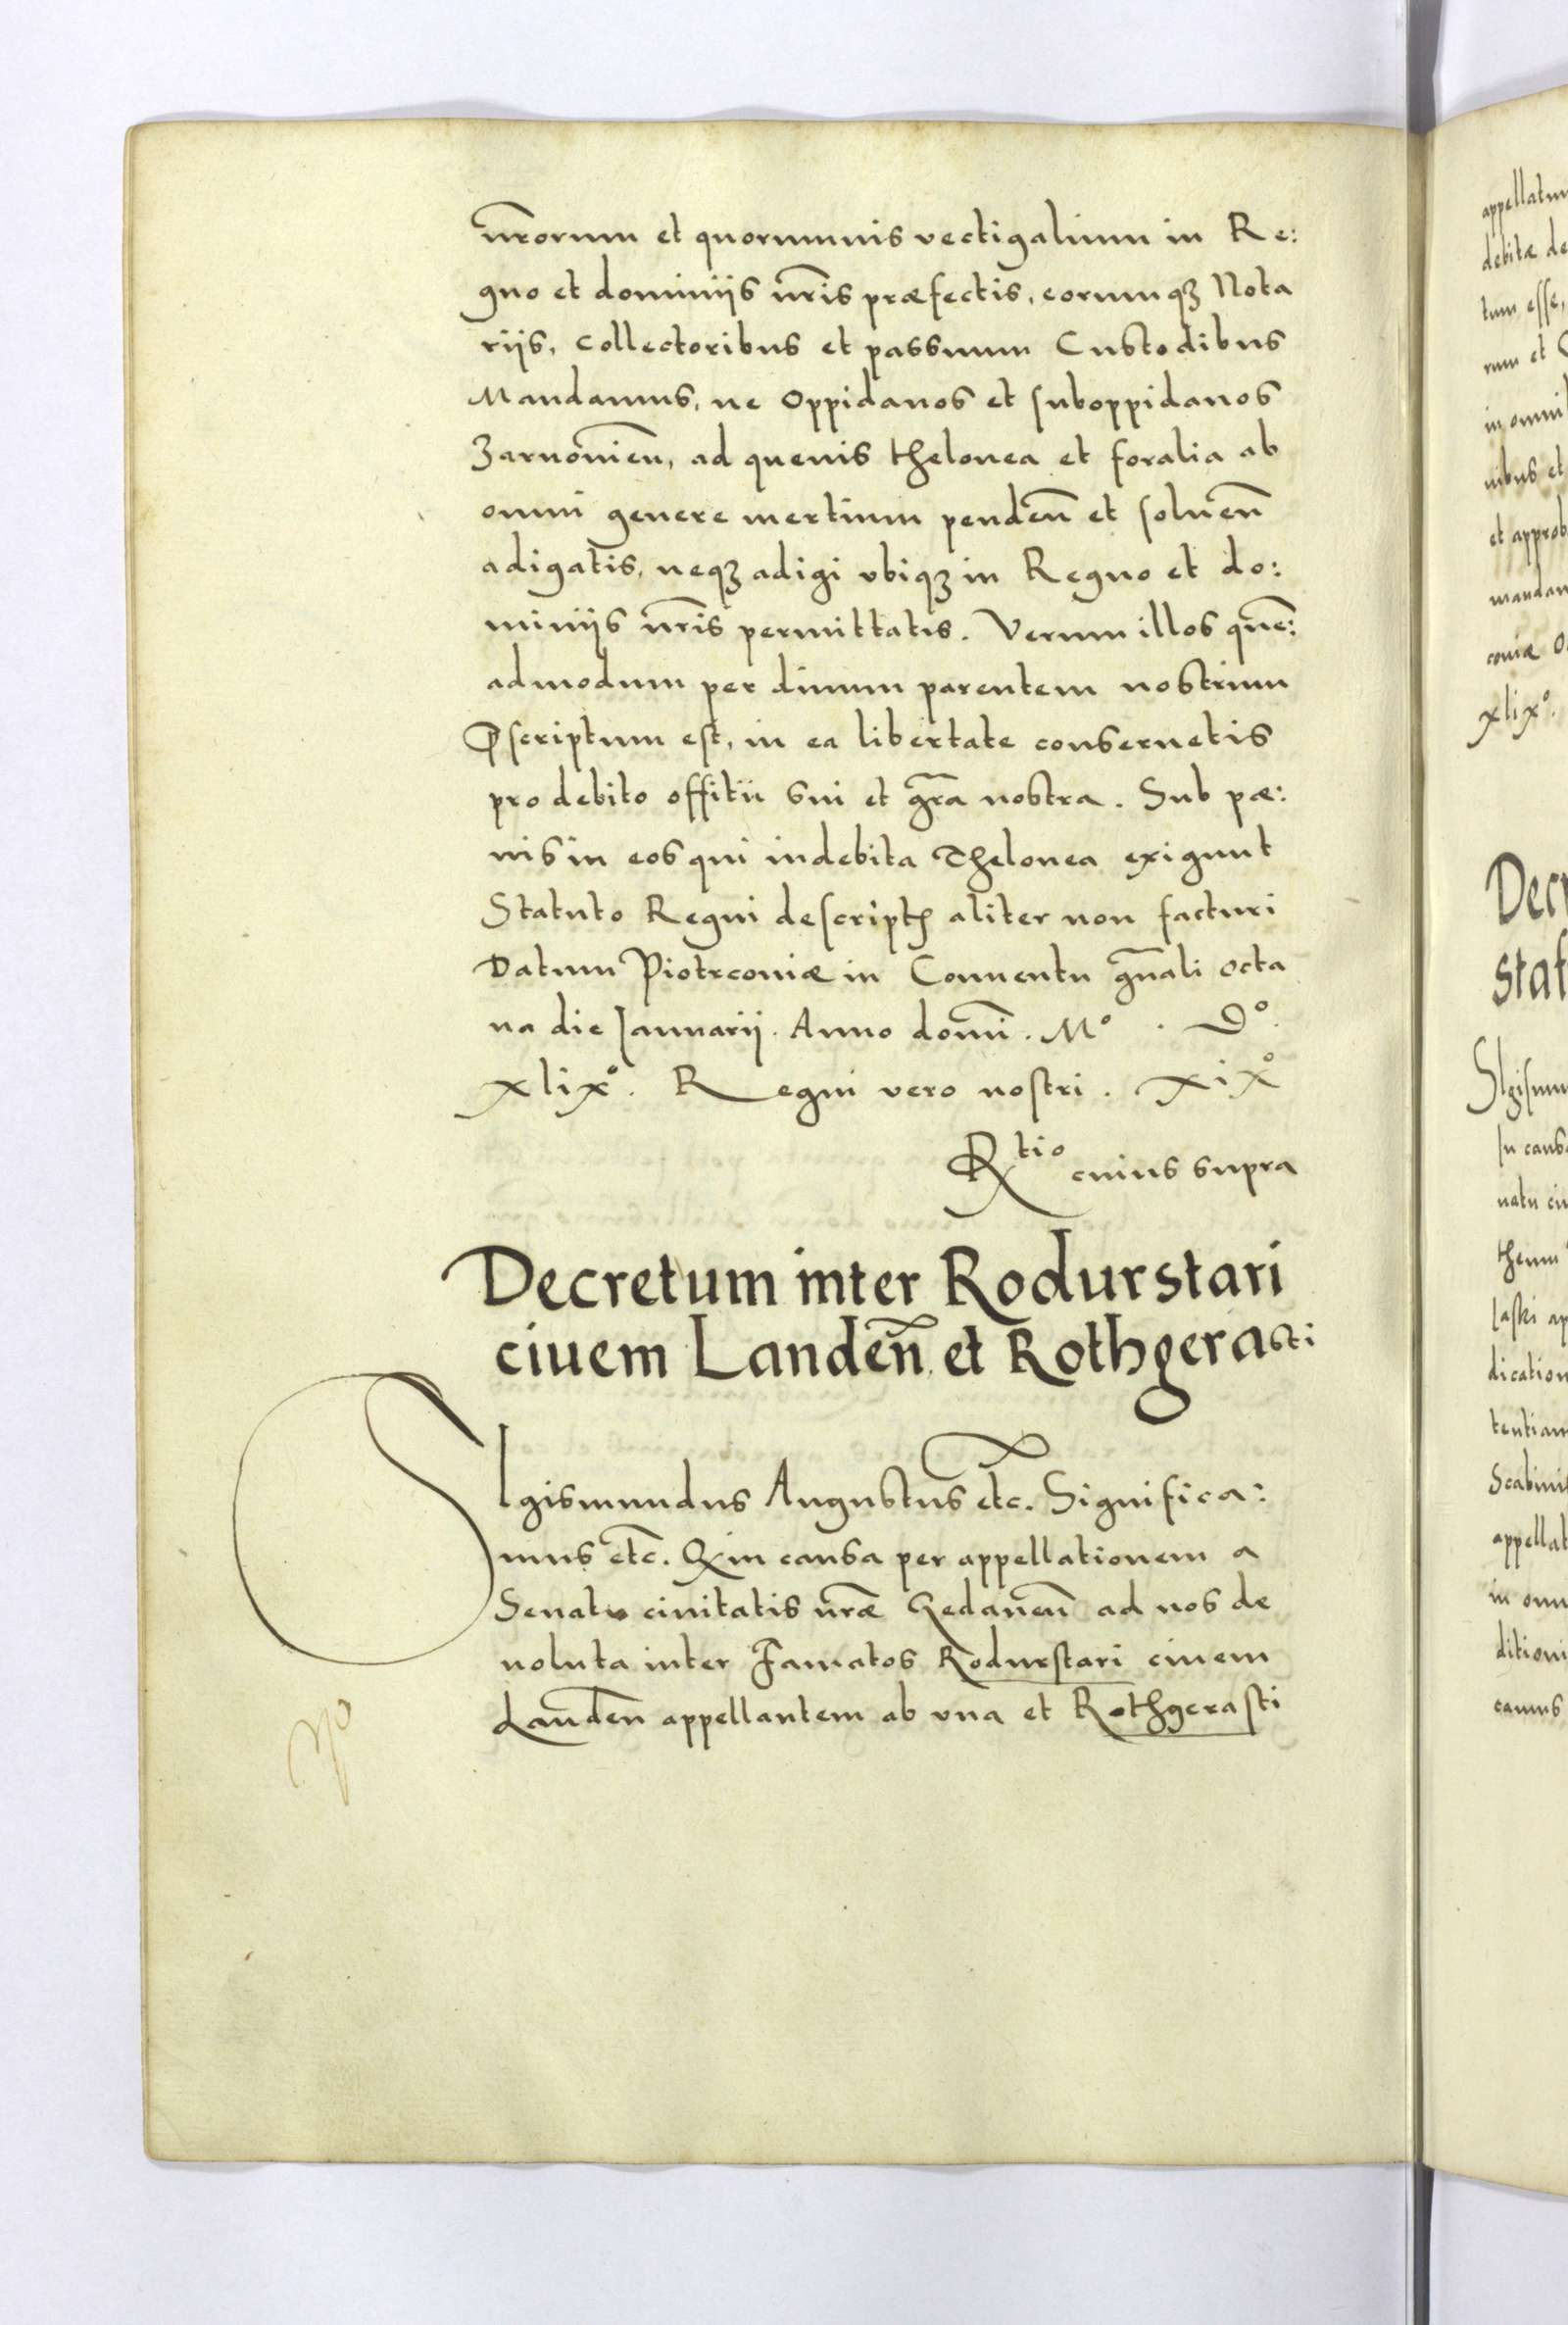 nr̄orum et quorumuis vectigalium in Re:
gno et dominijs nr̄is præfectis, eorumqꝫ Nota
rijs, Collectoribus et passuum Custodibus
Mandamus, ne Oppidanos et suboppidanos
Zarnouien̄, ad queuis thelonea et foralia ab
omni genere mertium penden̄ et soluen̄
adigatis, neqꝫ adigi vbiqꝫ in Regno et do:
minijs nr̄is permittatis. Verum illos quē:
admodum per diuum parentem nostrum
Pscriptum est, in ea libertate conseruetis
pro debito offitii sui et gr̄a nostra. Sub pæ:
nis in eos qui indebita Thelonea exigunt
Statuto Regni descriptꝭ aliter non facturi
Datum Piotrconiæ in Conuentu gn̄ali octa
ua die Ianuarij. Anno domī. Mº. Dº.
xlixº. Regni vero nostri. xixº
Rtio cuius supra
Decretum inter Rodurstari
ciuem Landen̄ et Rothgerasti
SIgismundus Augustus etc̄. Significa:
mus etc̄. Qm in causa per appellationem a
Senatu ciuitatis nr̄æ Gedanen̄ ad nos de
uoluta inter Famatos Rodurstari ciuem
Landen̄ appellantem ab vna et Rothgerasti
appellatum
debitæ de
tum esse,
rum et
in omni
nibus et
et approb
mandan
coniæ
xlixº.
Decr
stat
SIgismu
In caus
natu ci
laski ap
dication
tentiam
Scabini
appellat
in omn
ditioni
camus